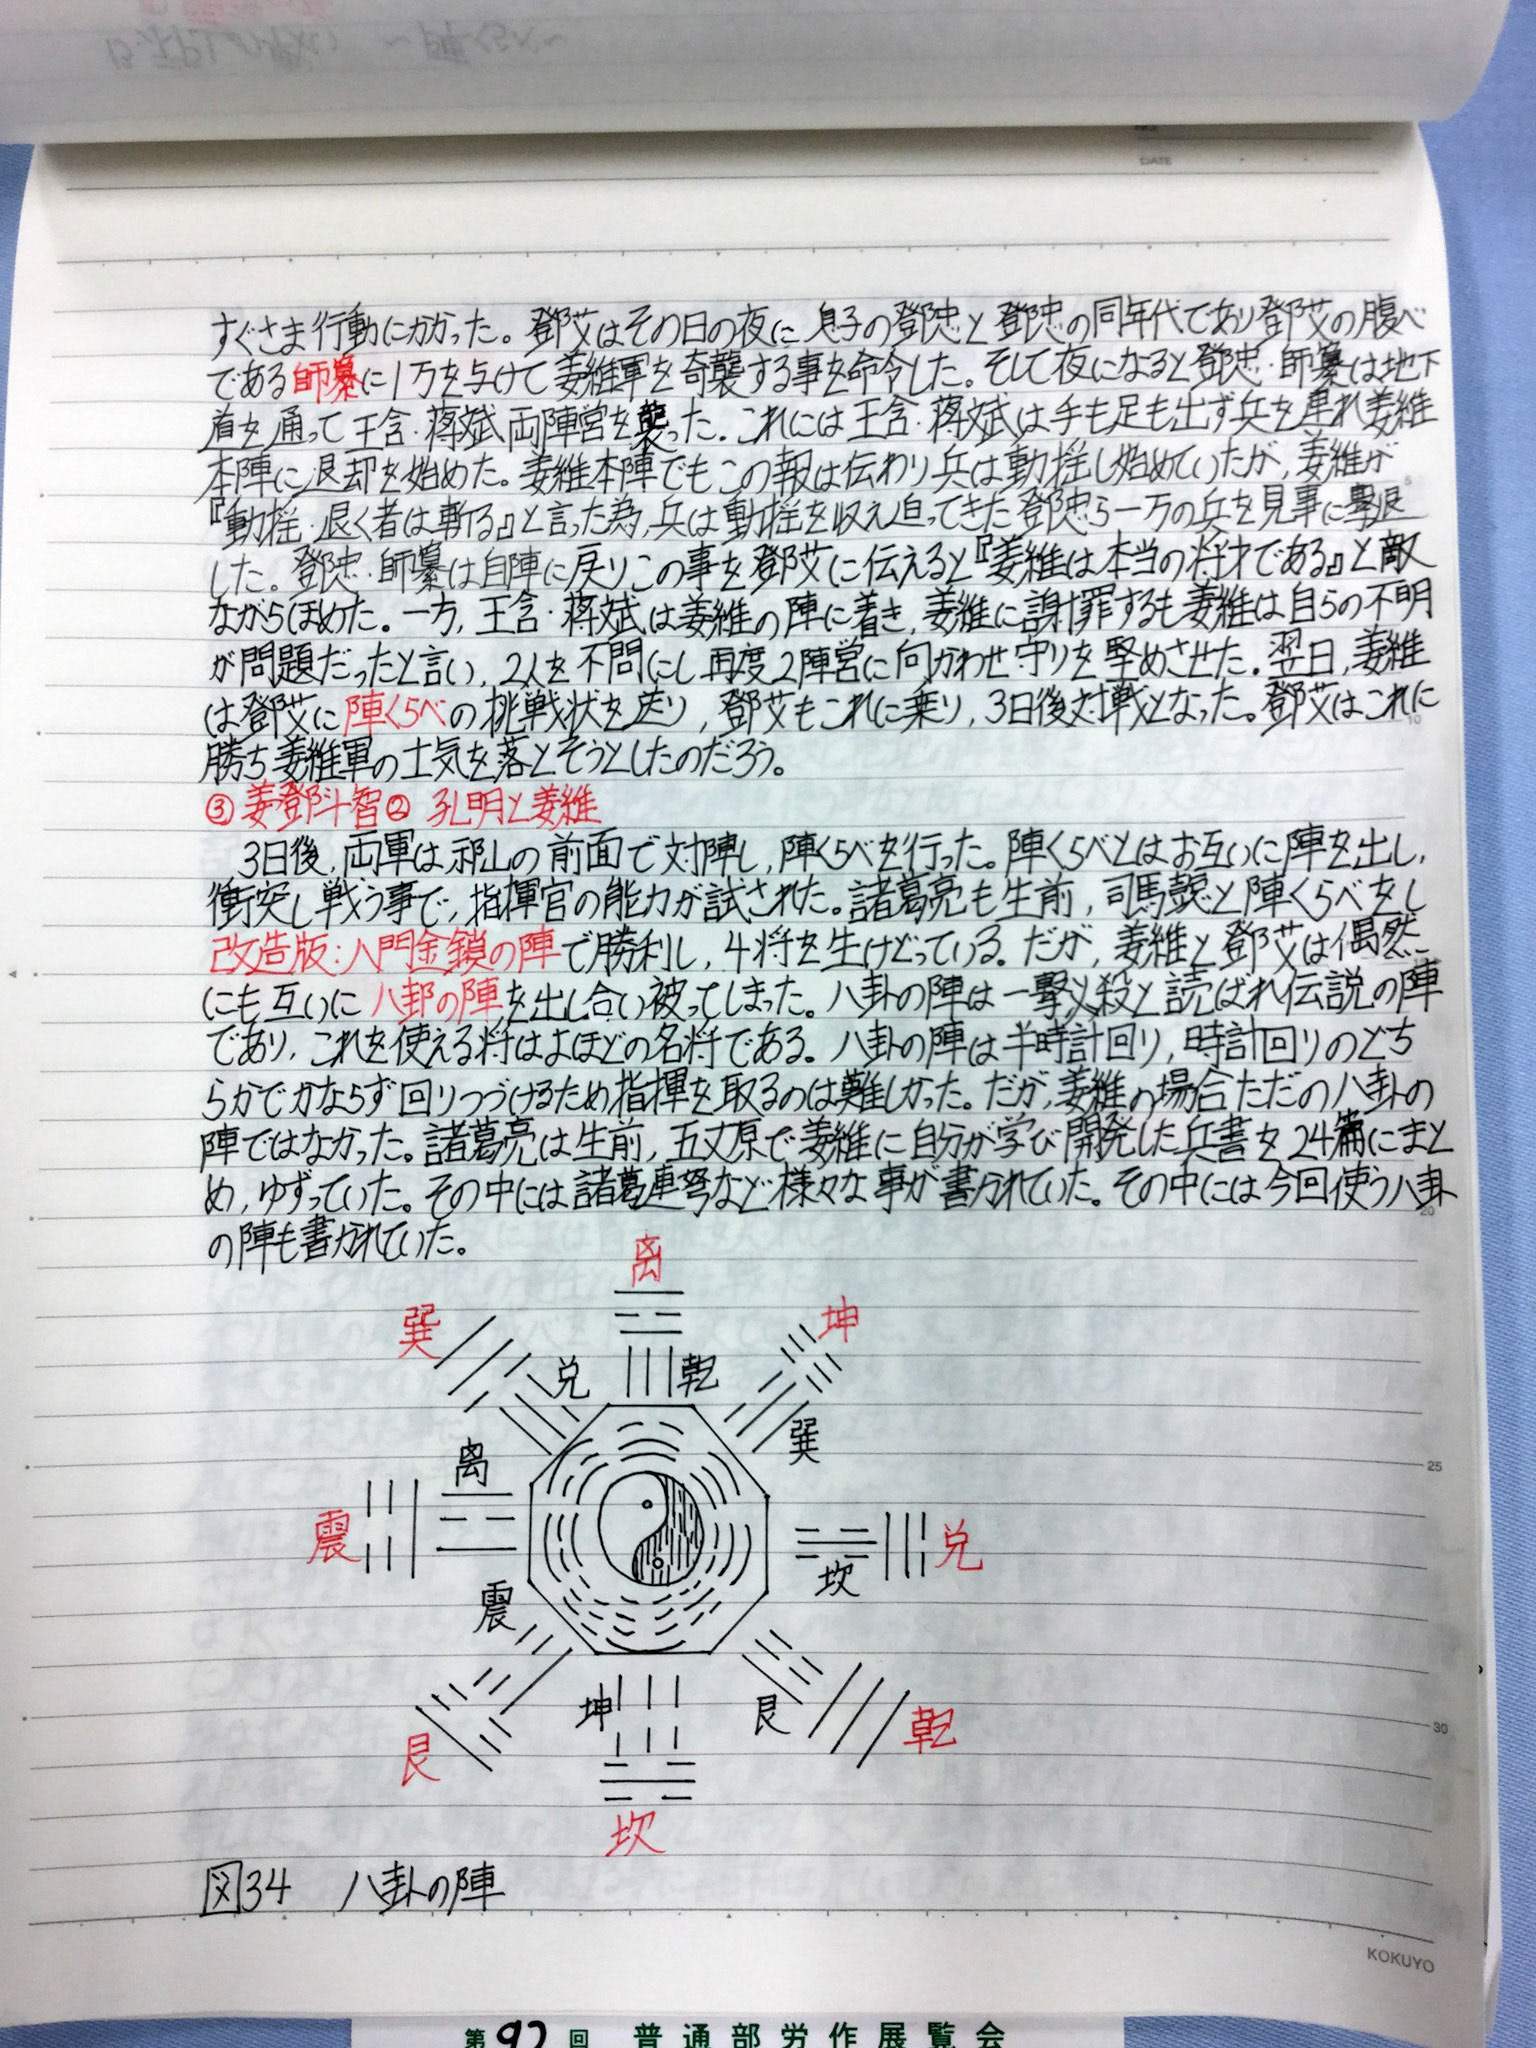 DATE
すぐさま行動にかかった。鄧艾はその日の夜に息子の鄧忠と鄧忠の同年代であり鄧艾の腹べ
である師纂に1万を与けて姜維軍を奇襲する事を命令した。そして夜になると鄧忠・師纂は地下
道を通って王含・蒋斌両陣営を襲った。これには王含・蒋斌は手も足も出ず兵を連れ姜維
本陣に退却を始めた。姜維本陣でもこの報は伝わり兵は動揺し始めていたが、姜維が
『動揺・退く者は斬る』と言った為、兵は動揺を収え迫ってきた鄧忠ら一万の兵を見事に撃退
した。鄧忠・師纂は自陣に戻りこの事を鄧艾に伝えると『姜維は本当の将才である』と敵
ながらほめた。一方、王含・蒋斌は姜維の陣に着き、姜維に謝罪するも姜維は自らの不明
が問題だったと言い、2人を不問にし再度2陣営に向かわせ守りを堅めさせた。翌日、姜維
は鄧艾に陣くらべの挑戦状を送り、鄧艾もこれに乗り、3日後対戦となった。鄧艾はこれに
勝ち姜維軍の士気を落とそうとしたのだろう。
③姜鄧斗智② 孔明と姜維
3日後、両軍は祁山の前面で対陣し、陣くらべを行った。陣くらべとはお互いに陣を出し、
衝突し戦う事で、指揮官の能力が試された。諸葛亮も生前、司馬懿と陣くらべをし
改造版:八門金鎖の陣で勝利し、4将を生けどっている。だが、姜維と鄧艾は偶然
にも互いに八卦の陣を出し合い被ってしまった。八卦の陣は一撃必殺と読ばれ伝説の陣
であり、これを使える将はよほどの名将である。八卦の陣は半時計回り、時計回りのどち
らかでかならず回りつづけるため指揮を取るのは難しかった。だが、姜維の場合ただの八卦の
陣ではなかった。諸葛亮は生前、五丈原で姜維に自分が学び開発した兵書を24篇にまと
め、ゆずっていた。その中には諸葛連弩など様々な事が書かれていた。その中には今回使う八卦
の陣も書かれていた。
离
巽 坤
兑 乾
巽
离
震 兑
坎
震
坤 艮
艮 乾
坎
図34 八卦の陣
5
10
20
25
30
KOKUYO
第92回 普通部労作展覧会